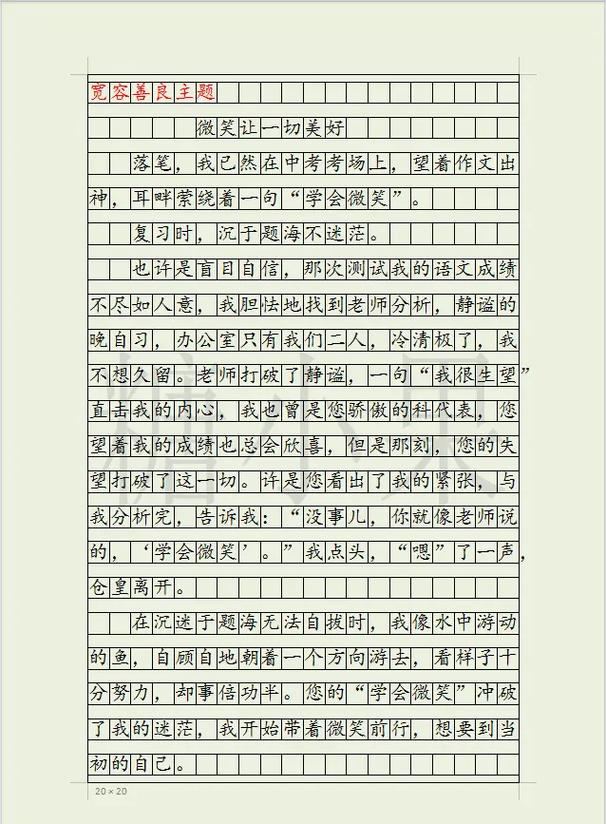 宽容善良主题
微笑让一切美好
落笔，我已然在中考考场上，望着作文出
神，耳畔萦绕着一句“学会微笑”。
复习时，沉于题海不迷茫。
也许是盲目自信，那次测试我的语文成绩
不尽如人意，我胆怯地找到老师分析，静谧的
晚自习，办公室只有我们二人，冷清极了，我
不想久留。老师打破了静谧，一句“我很生望”
直击我的内心，我也曾是您骄傲的科代表，您
望着我的成绩也总会欣喜，但是那刻，您的失
望打破了这一切。许是您看出了我的紧张，与
我分析完，告诉我：“没事儿，你就像老师说
的，‘学会微笑’。”我点头，“嗯”了一声，
仓皇离开。
在沉迷于题海无法自拔时，我像水中游动
的鱼，自顾自地朝着一个方向游去，看样子十
分努力，却事倍功半。您的“学会微笑”冲破
了我的迷茫，我开始带着微笑前行，想要到当
初的自己。
20×20
糖小果